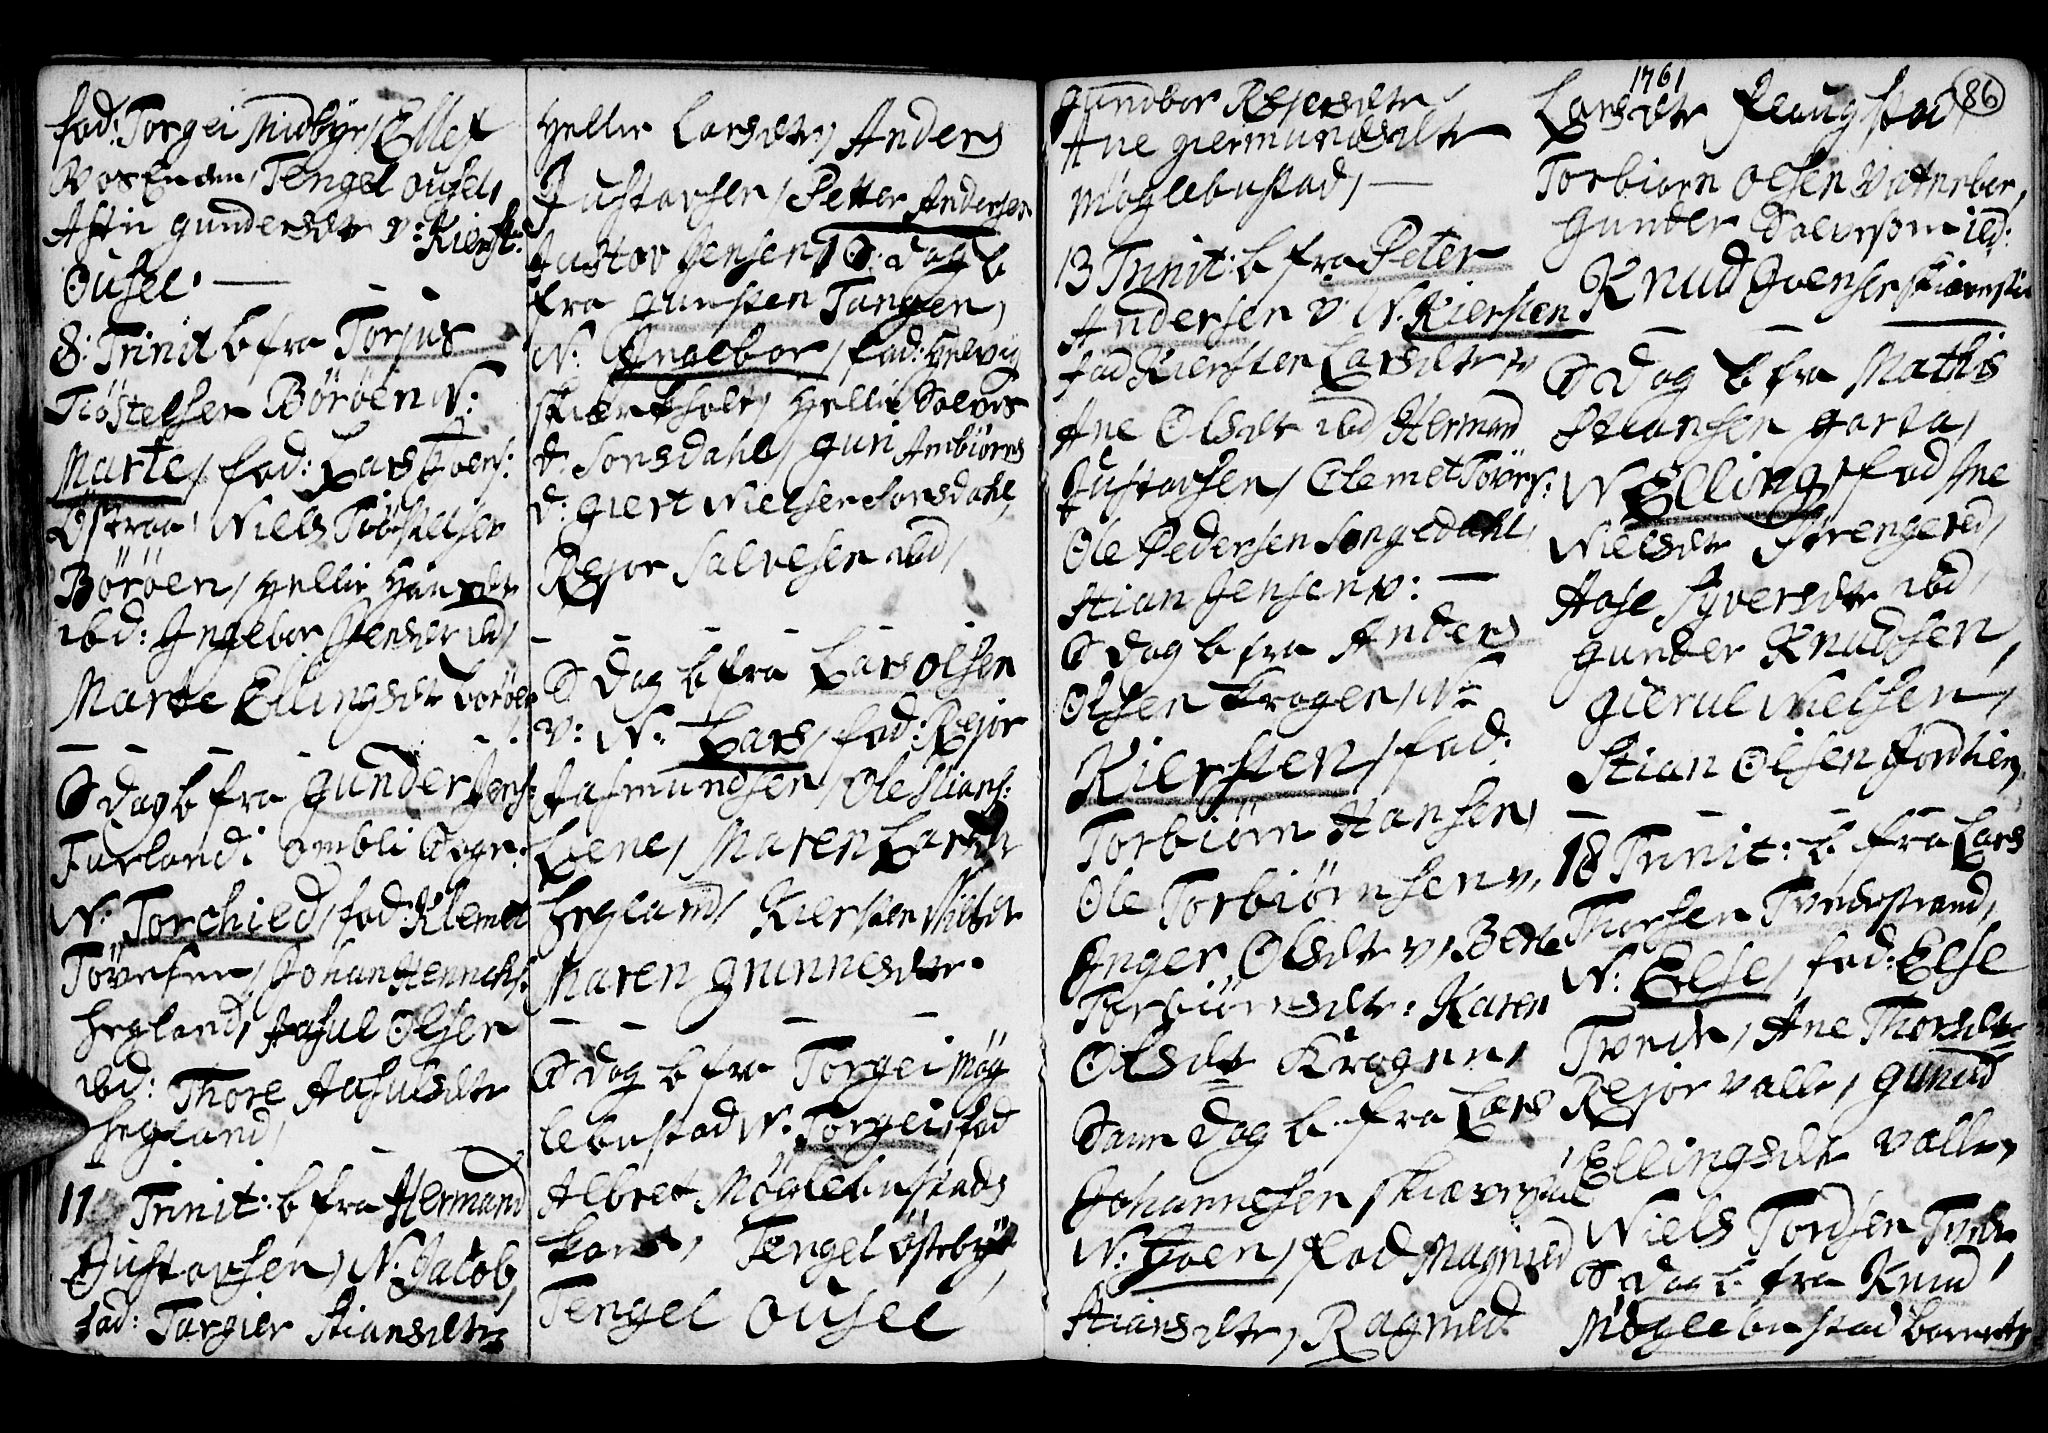 fad: Torgei Midbøe, Ellef
Tengel Ousel,
Gundersdtr v: Kierst:
Ousel.
8: Trinit b fra Torjus
Tiøstelsen Börøen N:
Marte, fad: Lars Joens:
Østraa, Niels Tiøstelsen
Börøen, Hellie
ibd: Ingebor Jensdtr ibd,
Marte Ellingsdtr Borøen
S dag b fra Gunder Jens:
Furland i Ombli Sogn:
N: Torchied, fad: Klemet
Tøvesen, Johan Henrichs:
Hegland, Aasul Olsen
ibd: Thore Aasulsdtr
Hegland,
11 Trinit: b fra Hermand
Justavsen, N. Jacob,
fad: Targier Stiansdtr
Hellie Larsdtr, Anders
Justavsen, Petter Andersen
Justav Jensen, S: dag b
fra Gunsten Tangen,
N. Ingebor, fad: Helvig
Hellie Salvis
d. Sonsdahl, Guri Anbiørns
d: Giert Nielsen Sonsdahl,
Rejor Salvesen ibd,
S dag b fra Lars Olsen
v: N: Lars, fad: Rejor
Aasmundsen, Ole Stians:
Liene, Maren Larsdtr
Hegland, Kiersten Nilsdtr
Maren Grunnesdtr.
S dag b fra Torgei Møg
lebustad N. Torgei, fad
Albret Møglebustads
kone, Tengel Østebøe,
Tengel Ousel
Gundbor Rejersdtr,
Ane Giermundsdtr
Møglebustad,
13 Trinit: b fra Peter
Andersen v: N. Kiersten
fad Kiersten Larsdtr v
Ane Olsdtr ibd Hermand
Justavsen, Clemet Tøves:
Ole Pedersen Songedahl,
Stian Jensen v:
S dag b fra Anders
Olsen Krogen, N:
Kiersten, fad:
Torbiørn Hansen,
Ole Torbiørnsen v,
Inger Olsdtr v, Berte
Torbiørnsdtr: Karen
Olsdtr Krogen,
Sam dag b. fra Lars
Johannesen
N: Joen, fad Magnild
Stiansdtr, Ragnild
1761
86
Larsdtr Flaugstad,
Torbiørn Olsen Vatneboe,
Gunder Salvesen ibd:
Knud Joensen
S dag b fra Mathis
Stiansen Garta,
N Elling, fad Ane
Nielsdtr Sørengered,
Aase Syversdtr ibd,
Gunder Knudsen,
Gierul Nielsen,
Stian Olsen
18 Trinit: b fra Lars
Thorsen Tvedestrand,
N: Else, fad: Else
Ane Thorsdtr
Rejor Valle, Gunild
Ellingsdtr Valle,
Niels Tordsen
S dag b fra Knud
Møglebustad